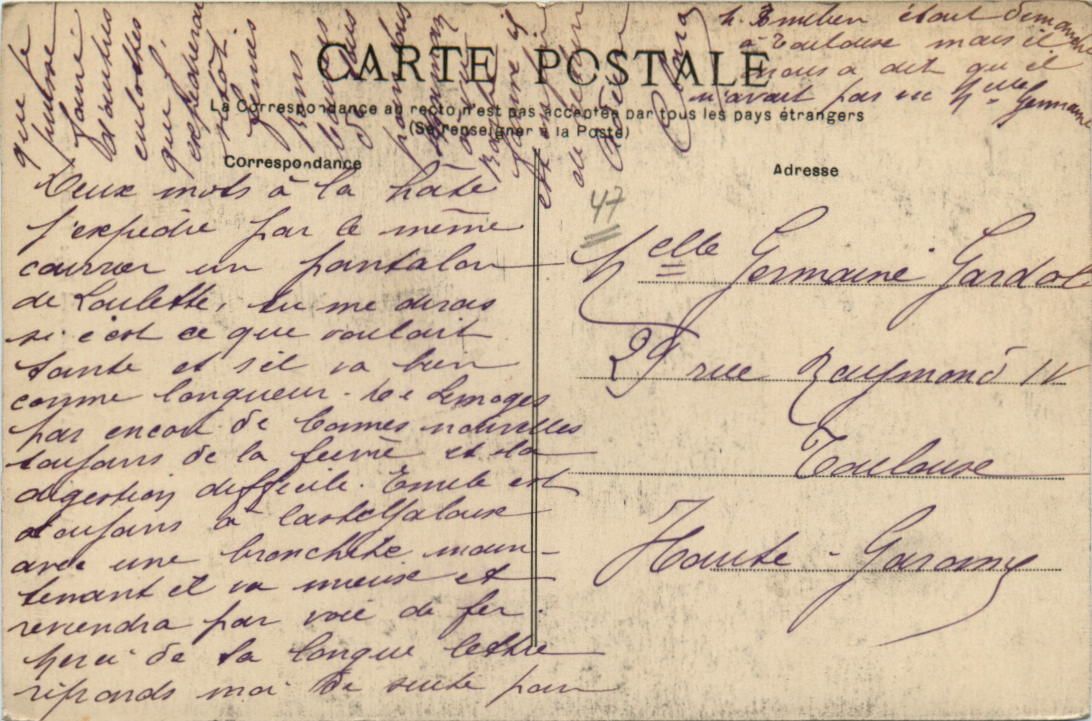 CARTE POSTALE
La Correspondance au recto n'est pas acceptée par tous les pays étrangers
(Se renseigner à la Poste)
Correspondance
Deux mots à la hâte
j'expédie par le même
courrier un pantalon
de Loulette, tu me diras
si c'est ce que voulait
tante et s'il va bien
comme longueur. De Limoges
pas encore de bonnes nouvelles
toujours de la fièvre et la
digestion difficile. Emile est
toujours à Casteljaloux
avec une bronchite main-
tenant il va mieux et
reviendra par voie de fer.
Merci de ta longue lettre
réponds moi de suite pour
que je
puisse
faire
d'autres
culottes
que j'
expédierai
bons
baisers
de
pour tous
Adresse
47
Melle Germaine Gardol
29 rue Raymond IV
Toulouse
Haute-Garonne
était
à Toulouse mais il
nous a dit qu'il
n'avait pas vu Melle Germaine